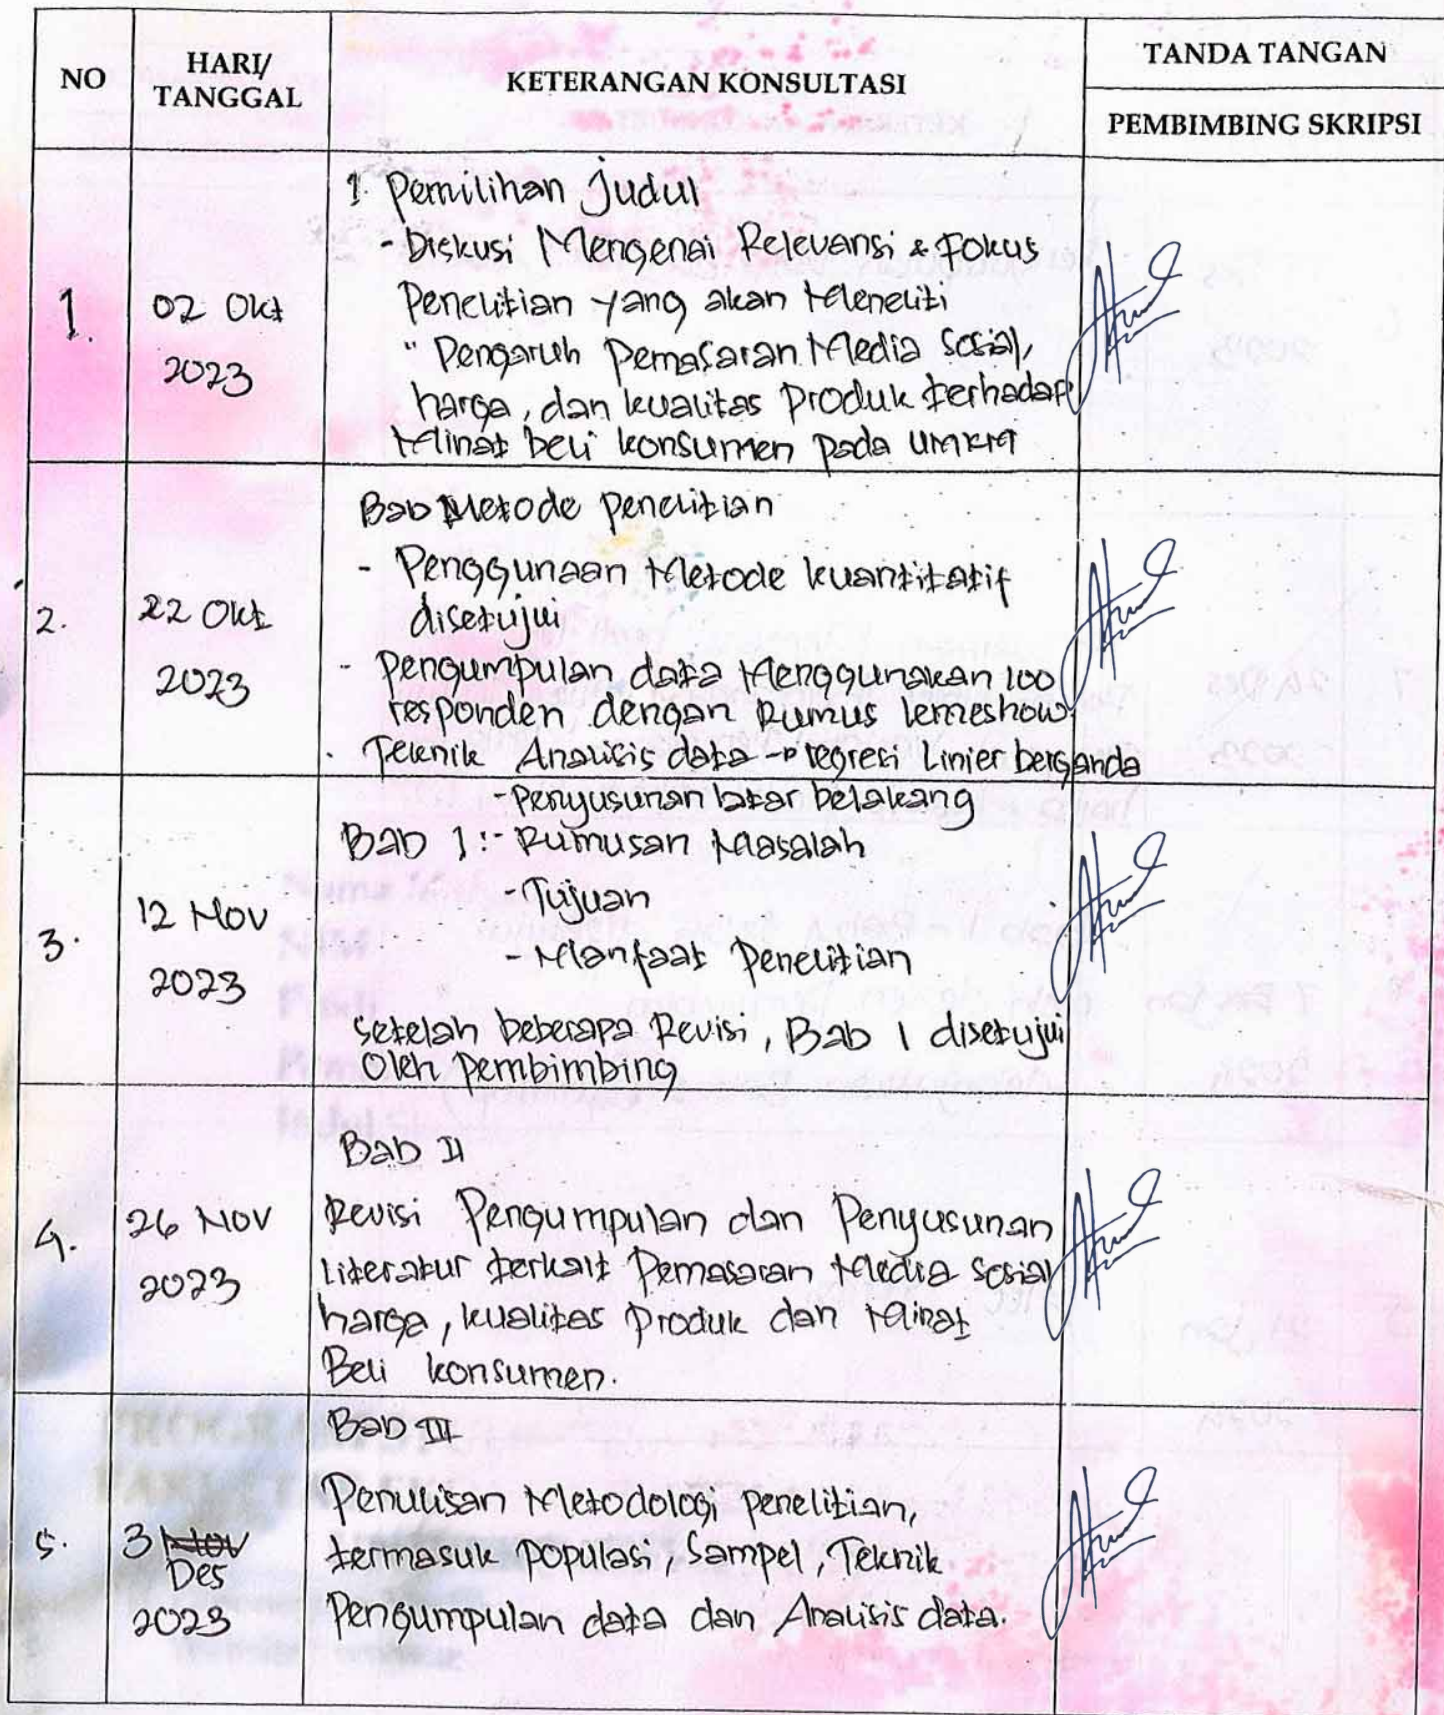 NO
HARI/
TANGGAL
KETERANGAN KONSULTASI
TANDA TANGAN
PEMBIMBING SKRIPSI
1.
02 Okt
2023
1. Pemilihan Judul
- Diskusi Mengenai Relevansi & Fokus
Penelitian yang akan Meneliti
" Pengaruh Pemasaran Media Sosial,
harga, dan kualitas Produk terhadap
Minat beli konsumen pada UMKM
2.
22 Okt
2023
Bab Metode Penelitian
- Penggunaan Metode kuantitatif
disetujui
- Pengumpulan data Menggunakan 100
responden dengan Rumus lemeshow
. Teknik Analisis data → regresi Linier berganda
3.
12 Nov
2023
- Penyusunan latar belakang
Bab 1 : - Rumusan Masalah
- Tujuan
- Manfaat Penelitian
setelah beberapa Revisi, Bab 1 disetujui
Oleh Pembimbing
4.
26 Nov
2023
Bab II
Revisi Pengumpulan dan Penyusunan
Literatur terkait Pemasaran Media Sosial
harga, kualitas Produk dan Minat
Beli konsumen.
5.
3 Nov
Des
2023
Bab III
Penulisan Metodologi penelitian,
termasuk populasi, Sampel, Teknik
Pengumpulan data dan Analisis data.